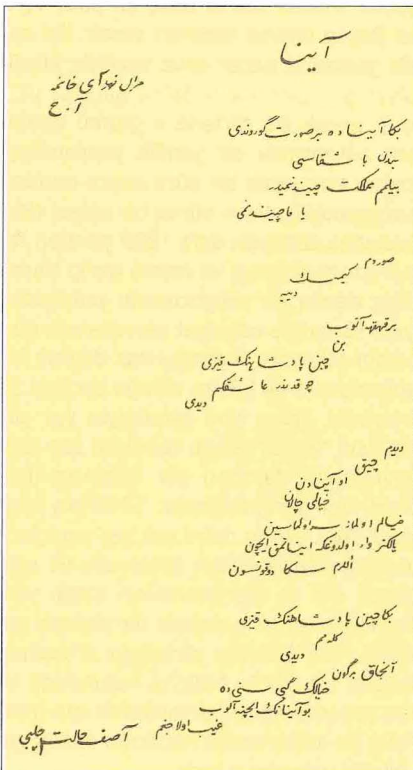 آینا
مرال نهدآی خانمه
آ. ح
بكا آینا ده بر صورت گوروندی
بندن باشقاسی
بیلمم مملكت چیندنمیدر
یا ماچیندنمی
صوردم
كیمسك
دییه
بر قهقهه آتوب
بن
چین پادشاهنك قیزی
چوقدندر عاشقكم
دیدی
دیدم
چیق
او آینادن
خیالی چالان
خیالم اولماز سه اولماسین
یالكز وار اولدوغكه اینانمق ایچون
اللرم سكا دوقونسون
بكا چین پادشاهنك قیزی
گلمم
دیدی
آنجاق برگون خیالك گبی سنی ده
بو آینانك ایچنه آلوب
غیب اولاجغم
آصف حالت چلبی